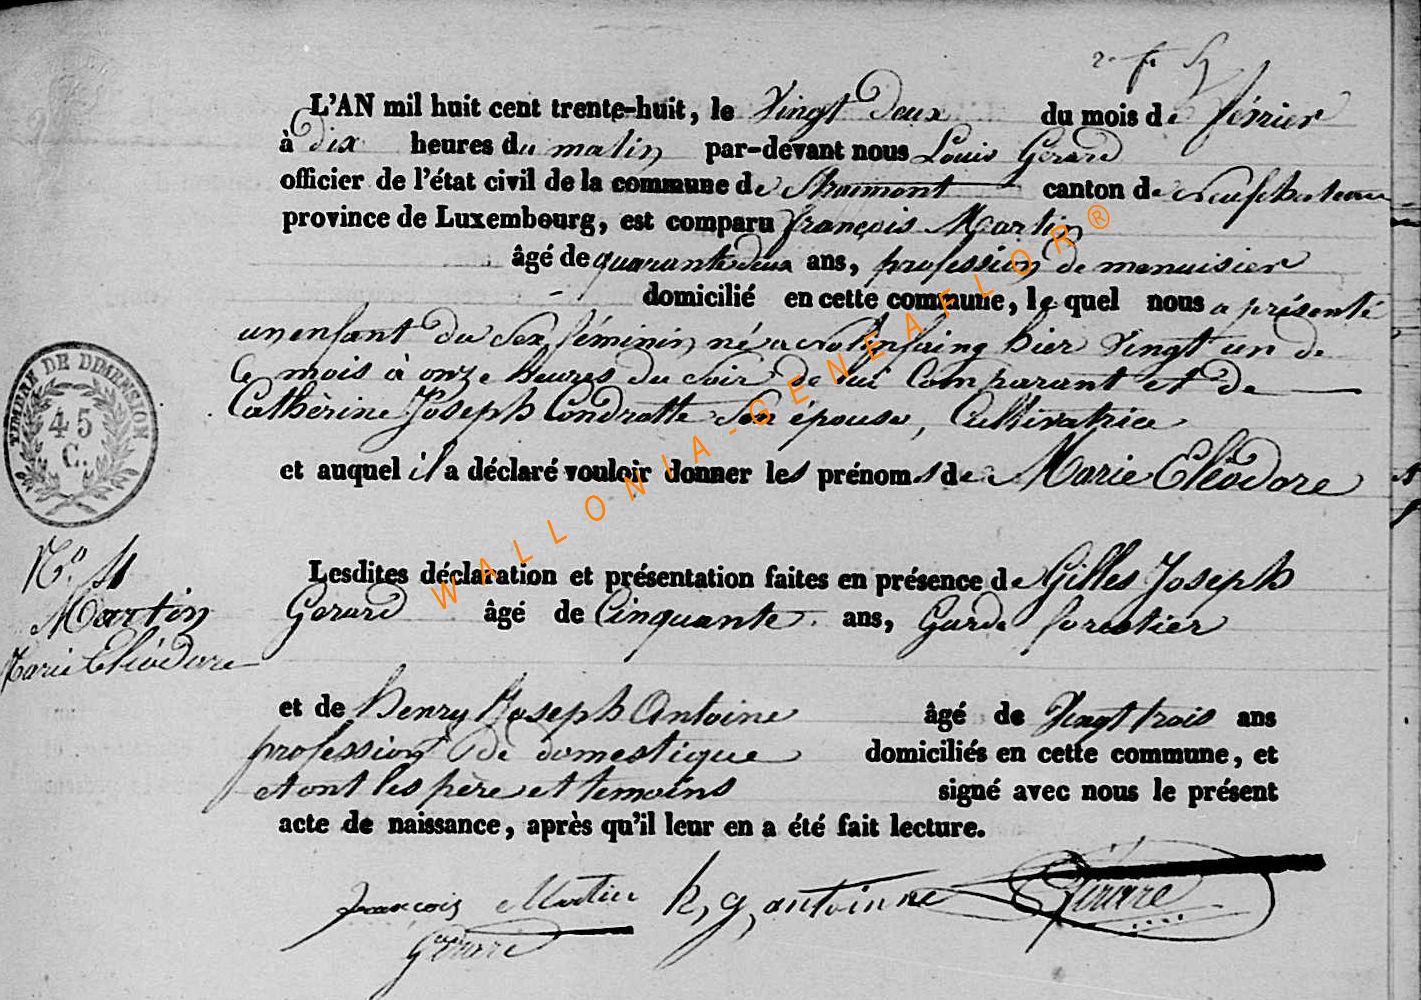 L'AN mil huit cent trente-huit, le Vingt Deux du mois de février
à Dix heures du matin par-devant nous Louis Gerard
officier de l'état civil de la commune de Straimont canton de Neufchateau
province de Luxembourg, est comparu françois Martin
âgé de quarante deux ans, profession de menuisier
domicilié en cette commune, lequel nous a présenté
un enfant du Sex féminin né a hier Vingt un de
Ce mois à onze heures du Soir de lui Comparant et de
Cathèrine Joseph Condrotte Son épouse, Cultivatrice
et auquel il a déclaré vouloir donner les prénoms de Marie Eléodore
TIMBRE DE DIMENSION
45
C.
N.º 4
Martin
Marie Eléodore
Lesdites déclaration et présentation faites en présence de Gilles Joseph
Gerard âgé de Cinquante ans, Garde forestier
et de henry Joseph Antoine âgé de Vingt trois ans
profession de domestique domiciliés en cette commune, et
et ont les père et temoins signé avec nous le présent
acte de naissance, après qu'il leur en a été fait lecture.
françois Martin h, g, antoinne Gérard
Gerard
WALLONIA-GENEAFLOR®